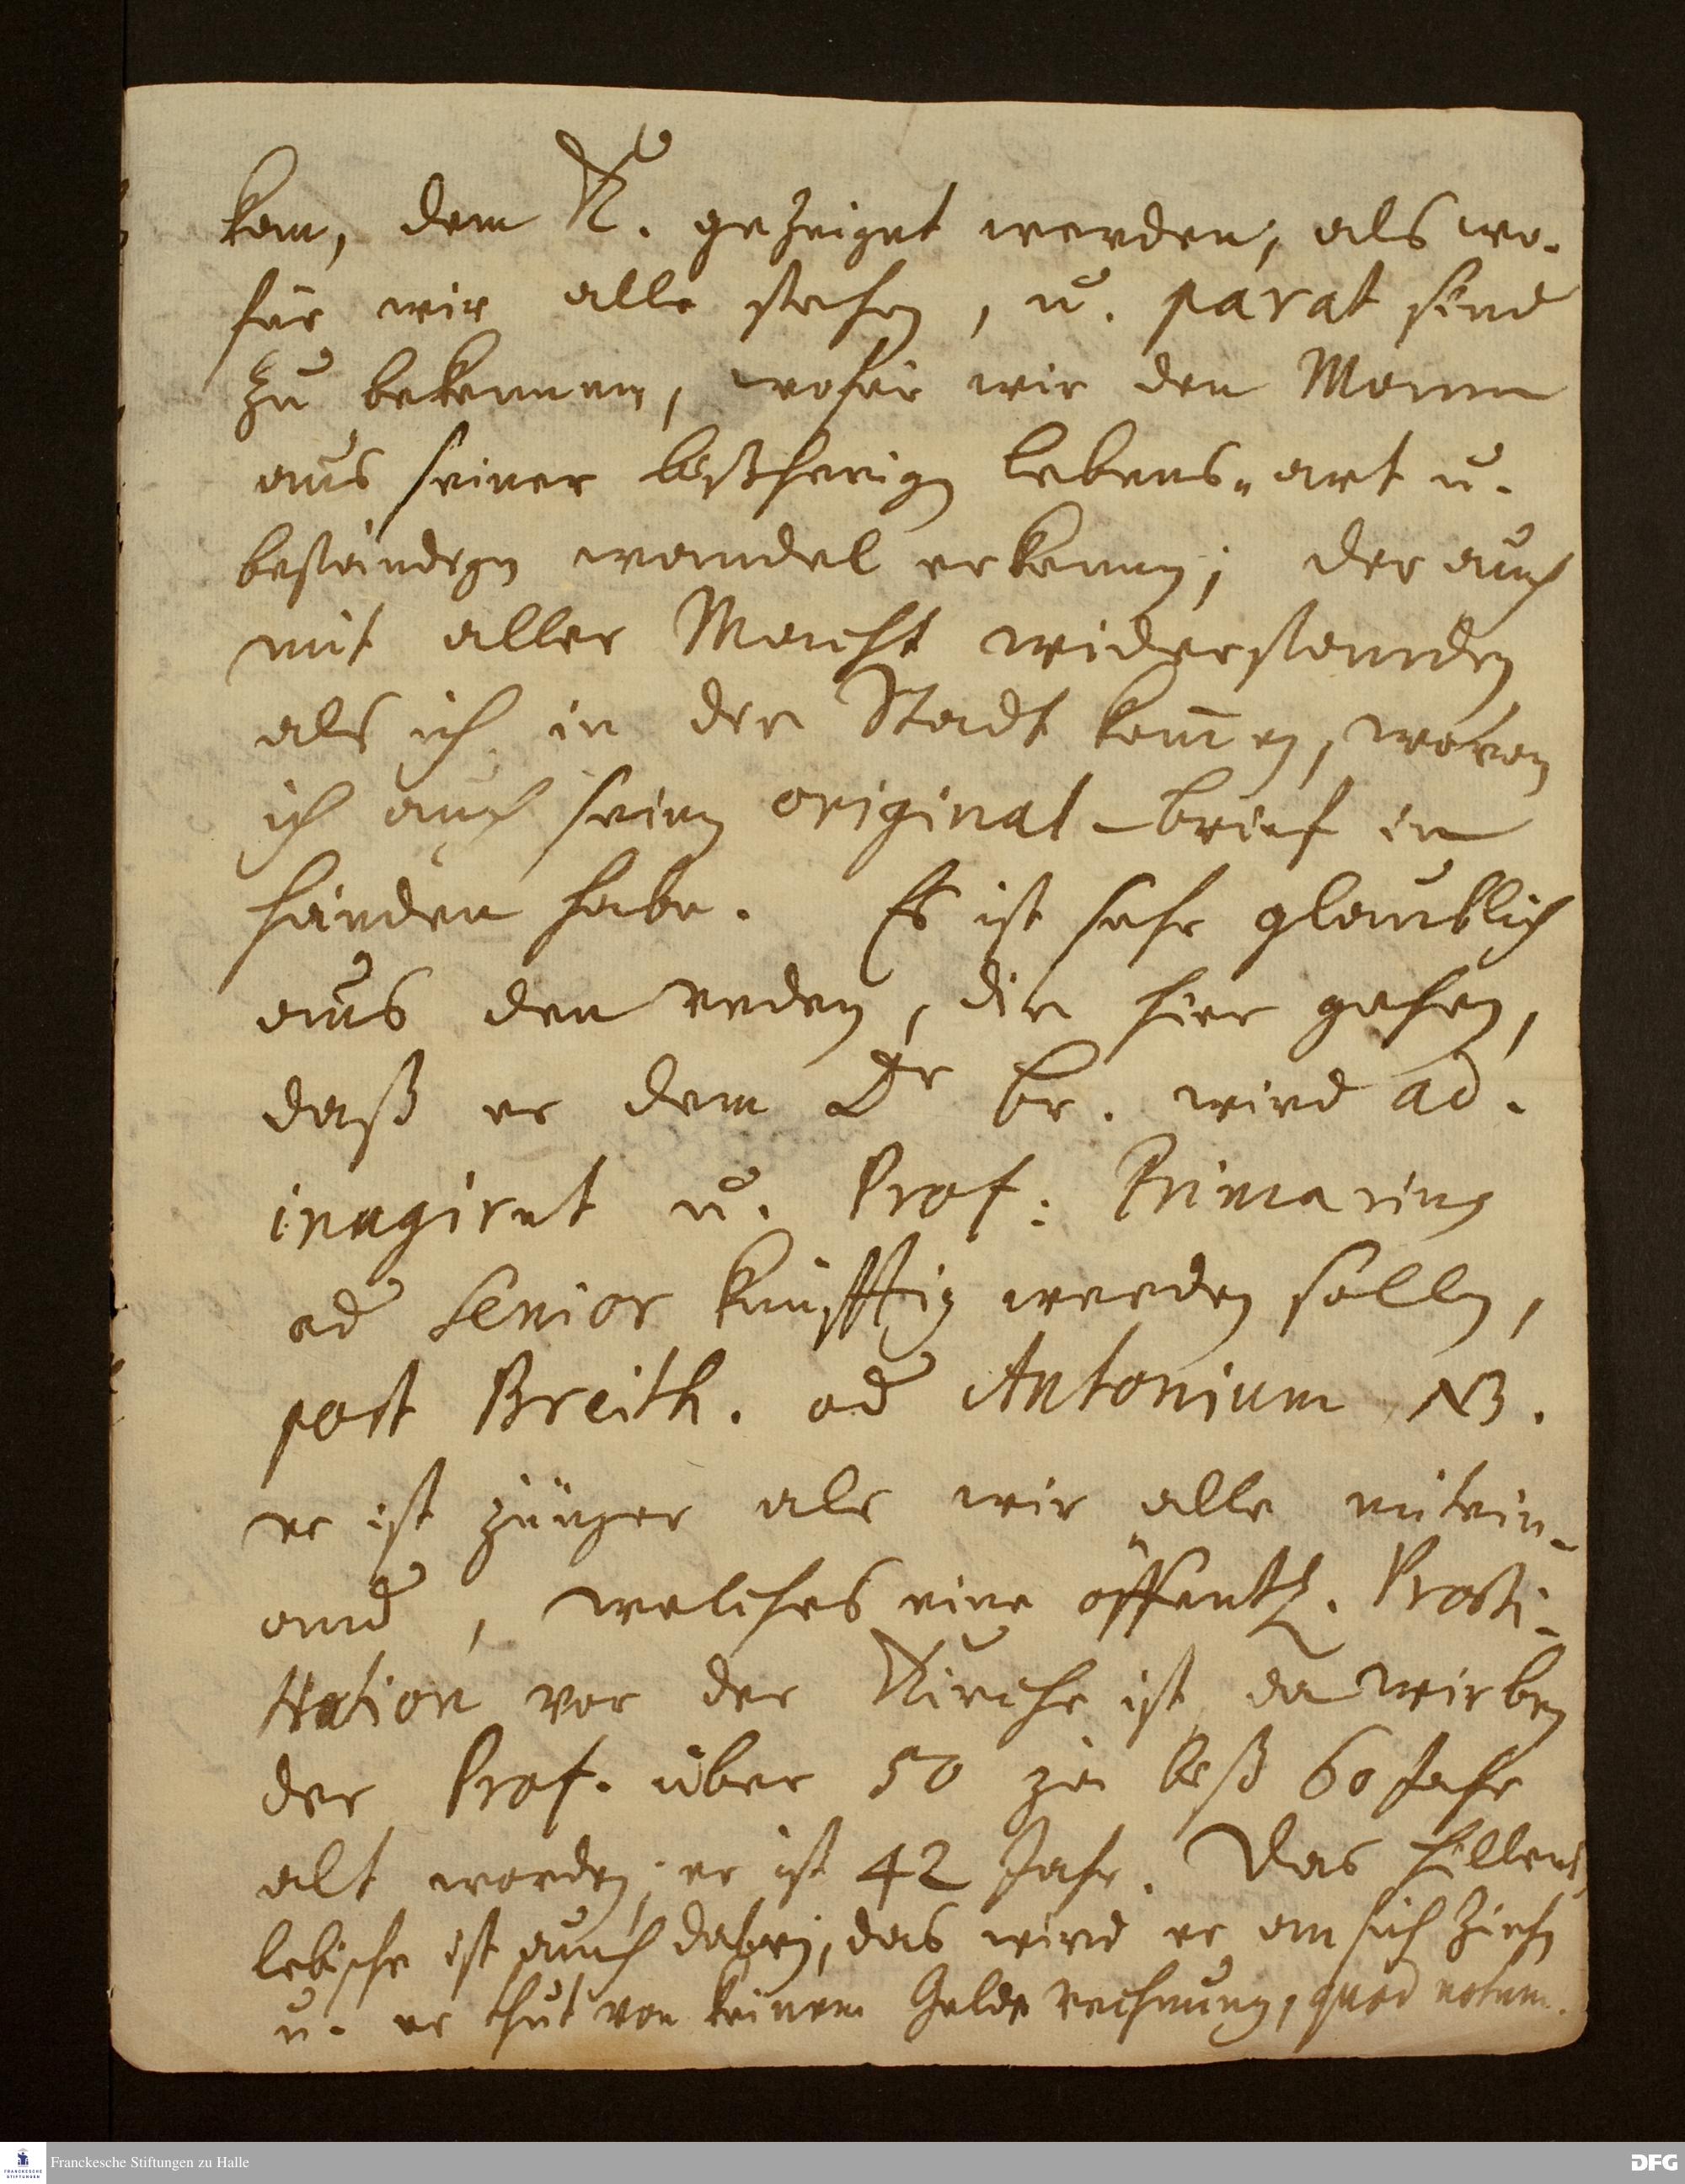 kam, dem K. gezeiget werden, als wo-
für wir alle stehen, u. parat sind
zu bekennen, wofür wir den Mann
aus seiner bißherigen lebens-art u.
beständigen wandel erkennen; der auch
mit aller Macht widerstanden
als ich in der Stadt kom̄en, wovon
ich auch seinen original-brief in
händen habe. Es ist sehr glaublich
aus den reden, die hier gehen,
daß er dem Dr br. wird ad-
jungiret u. Prof: Primarius
od Senior künfftig werden sollen,
post Breith. od Antonium NB.
er ist jünger als wir alle mitein-
and, welches eine öffentl. Prosti-
tution vor der Kirche ist, da wir bey
der Prof. über 50 ja biß 60 Jahr
alt worden, er ist 42 Jahr. Das Hillers-
lebische ist auch dabey, das wird er an sich ziehen
u. er thut von keinem Gelde rechnung, quod notum.
Franckesche Stiftungen zu Halle
DFG